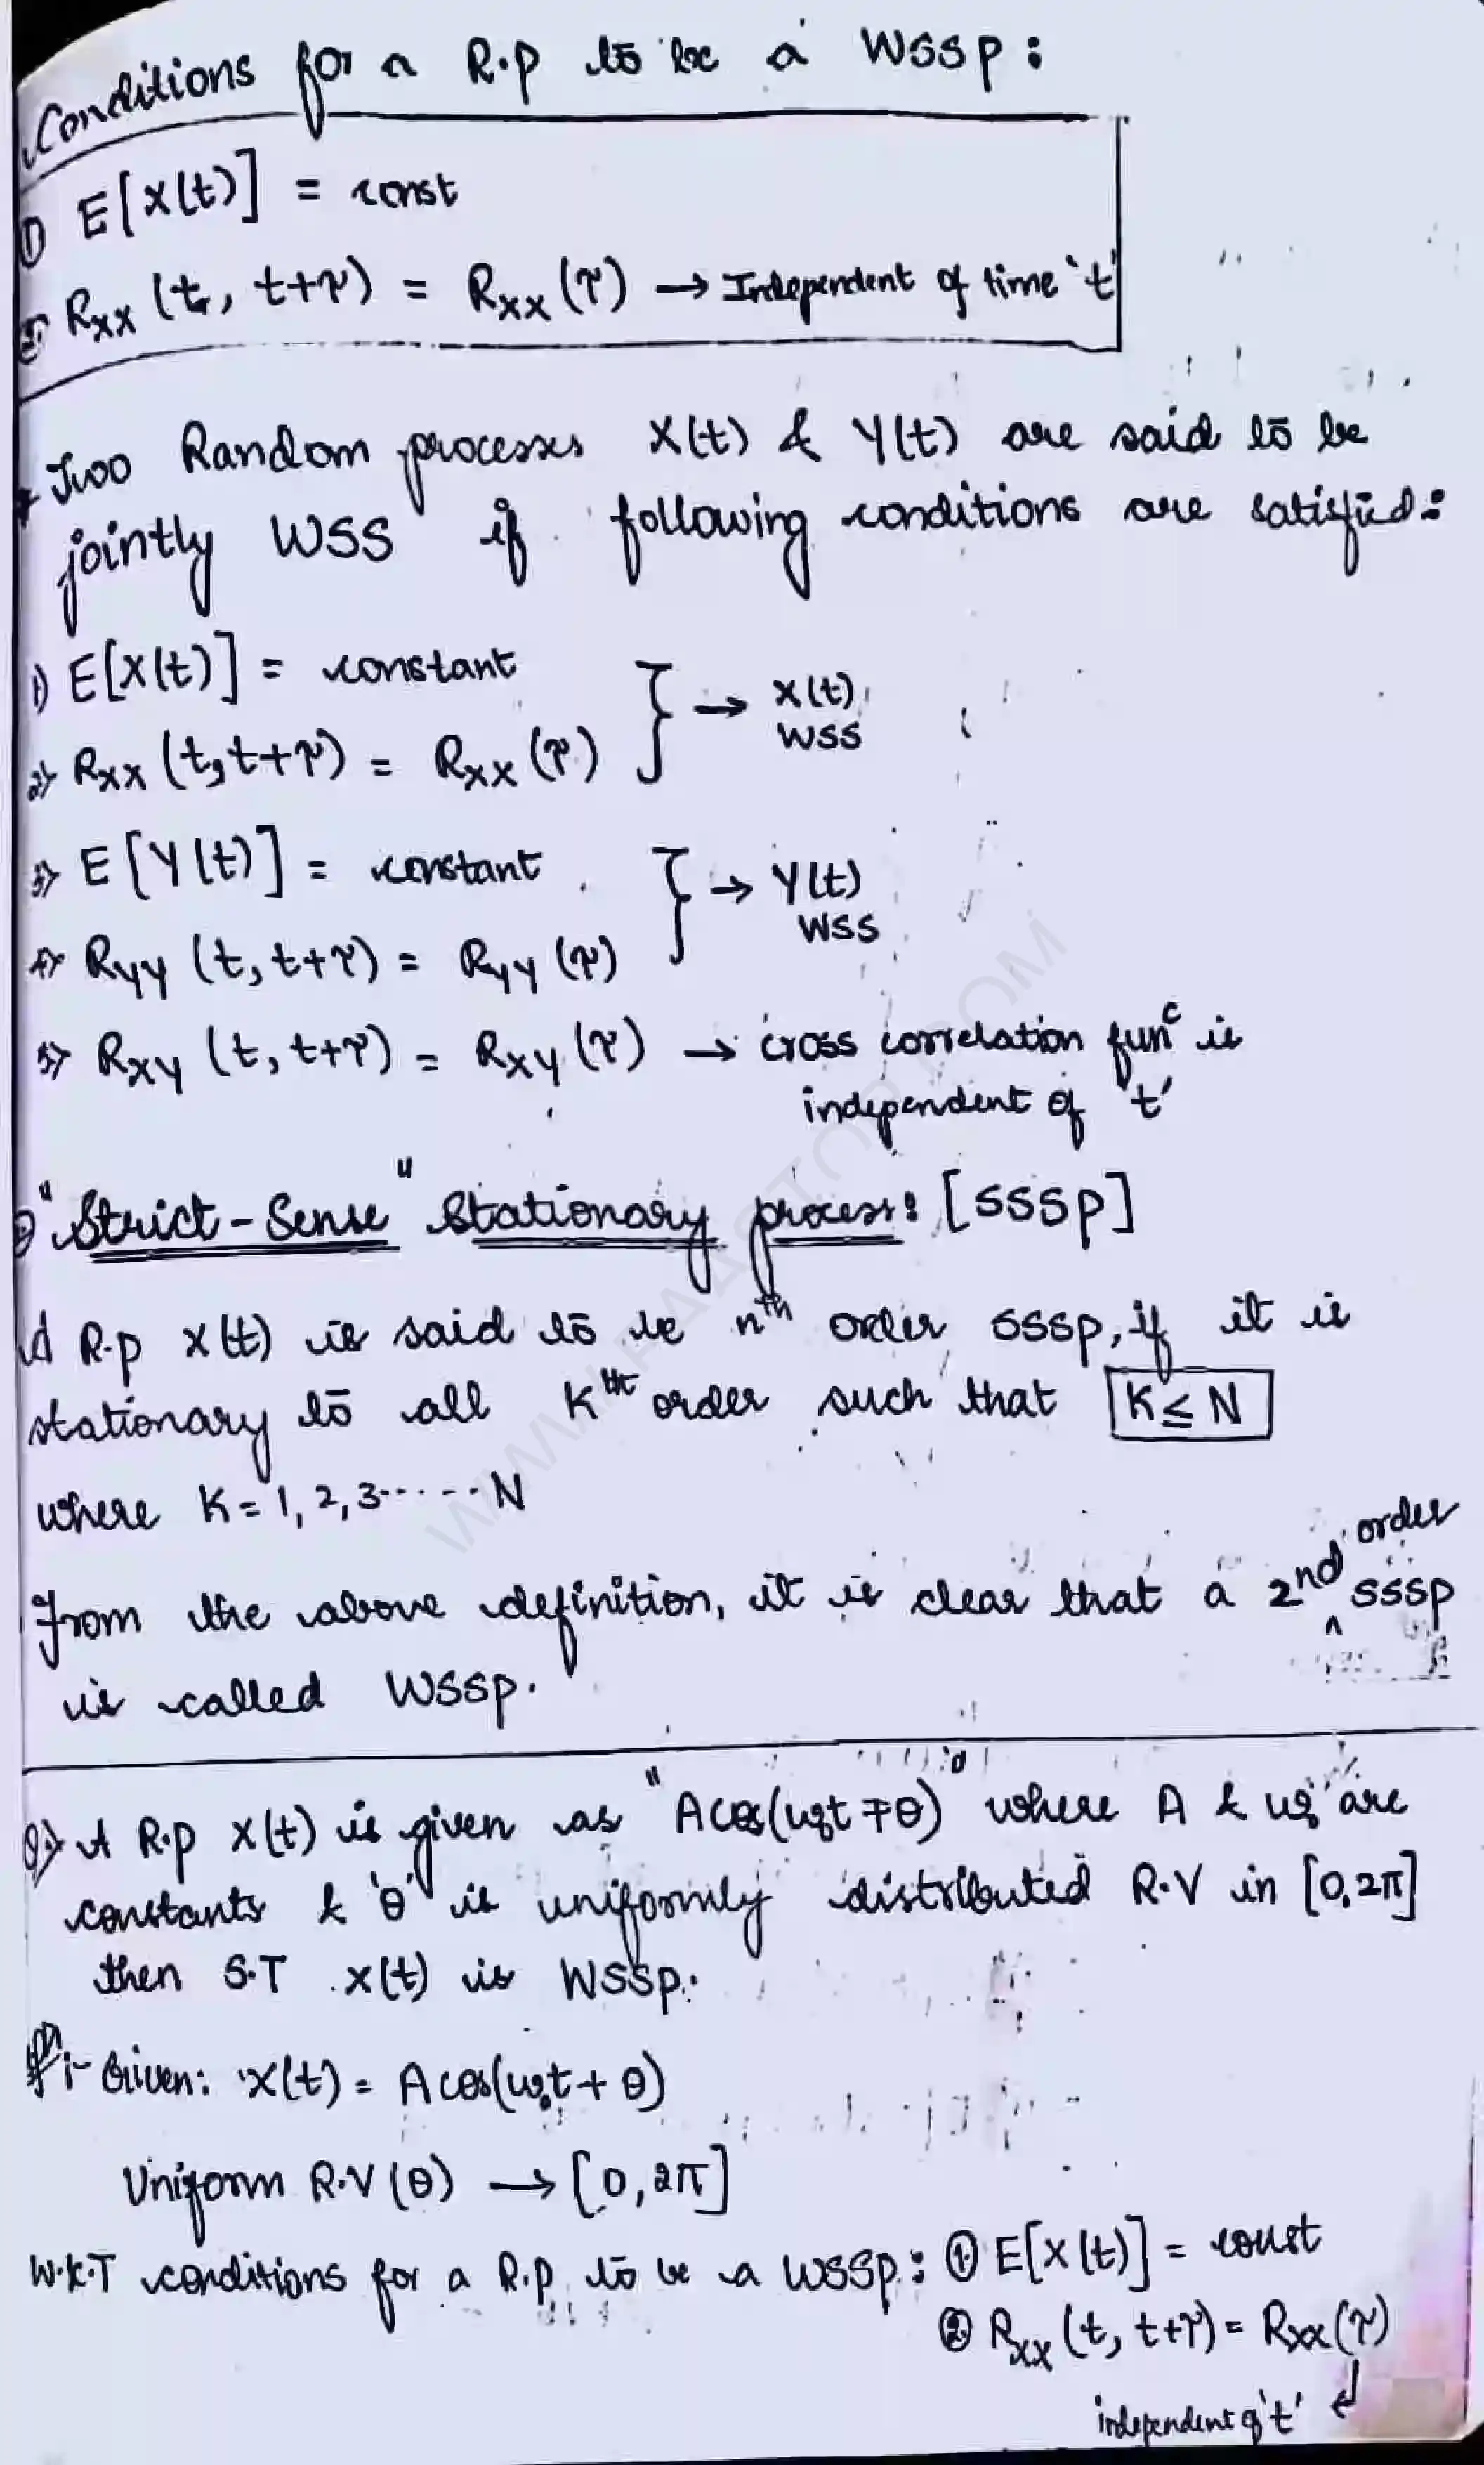 Conditions for a R.P to be a WSSP:
① E[X(t)] = const
② RXX (t, t+τ) = RXX (τ) → Independent of time 't'
* Two Random processes X(t) & Y(t) are said to be
jointly WSS if following conditions are satisfied:
1) E[X(t)] = constant
2) RXX (t, t+τ) = RXX (τ)
} → X(t) WSS
3) E[Y(t)] = constant
4) RYY (t, t+τ) = RYY (τ)
} → Y(t) WSS
5) RXY (t, t+τ) = RXY (τ) → cross correlation funᶜ is
independent of 't'
"Strict-Sense" Stationary process: [SSSP]
A R.P X(t) is said to be nth order SSSP, if it is
stationary to all Kth order such that K ≤ N
where K = 1, 2, 3 ...... N
From the above definition, it is clear that a 2nd order SSSP
is called WSSP.
Q.) A R.P X(t) is given as "Acos(ω0t ∓ θ)" where A & ω0 are
constants & 'θ' is uniformly distributed R.V in [0, 2π]
then S.T X(t) is WSSP.
Given: X(t) = A cos(ω0t + θ)
Uniform R.V (θ) → [0, 2π]
W.K.T conditions for a R.P to be a WSSP: ① E[X(t)] = const
② RXX (t, t+τ) = RXX (τ)
independent of 't'